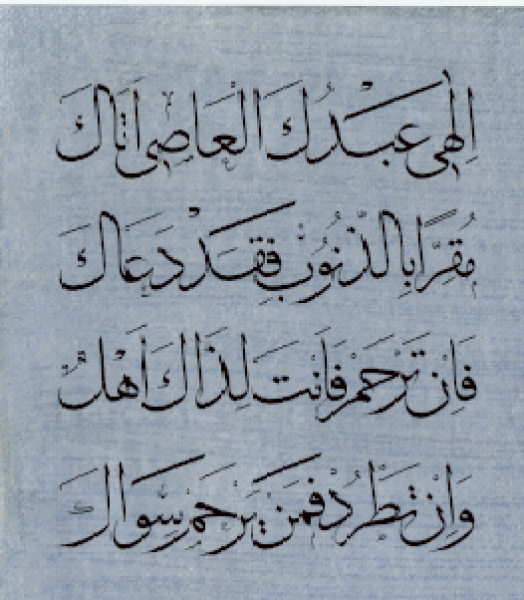 اِلٰهِى عَبْدُكَ الْعَاصِى اَتَاكَ
مُقِرًّا بِالذُّنُوْبِ فَقَدْ دَعَاكَ
فَاِنْ تَرْحَمْ فَاَنْتَ لِذَاكَ اَهْلٌ
وَاِنْ تَطْرُدْ فَمَنْ يَرْحَمْ سِوَاكَ